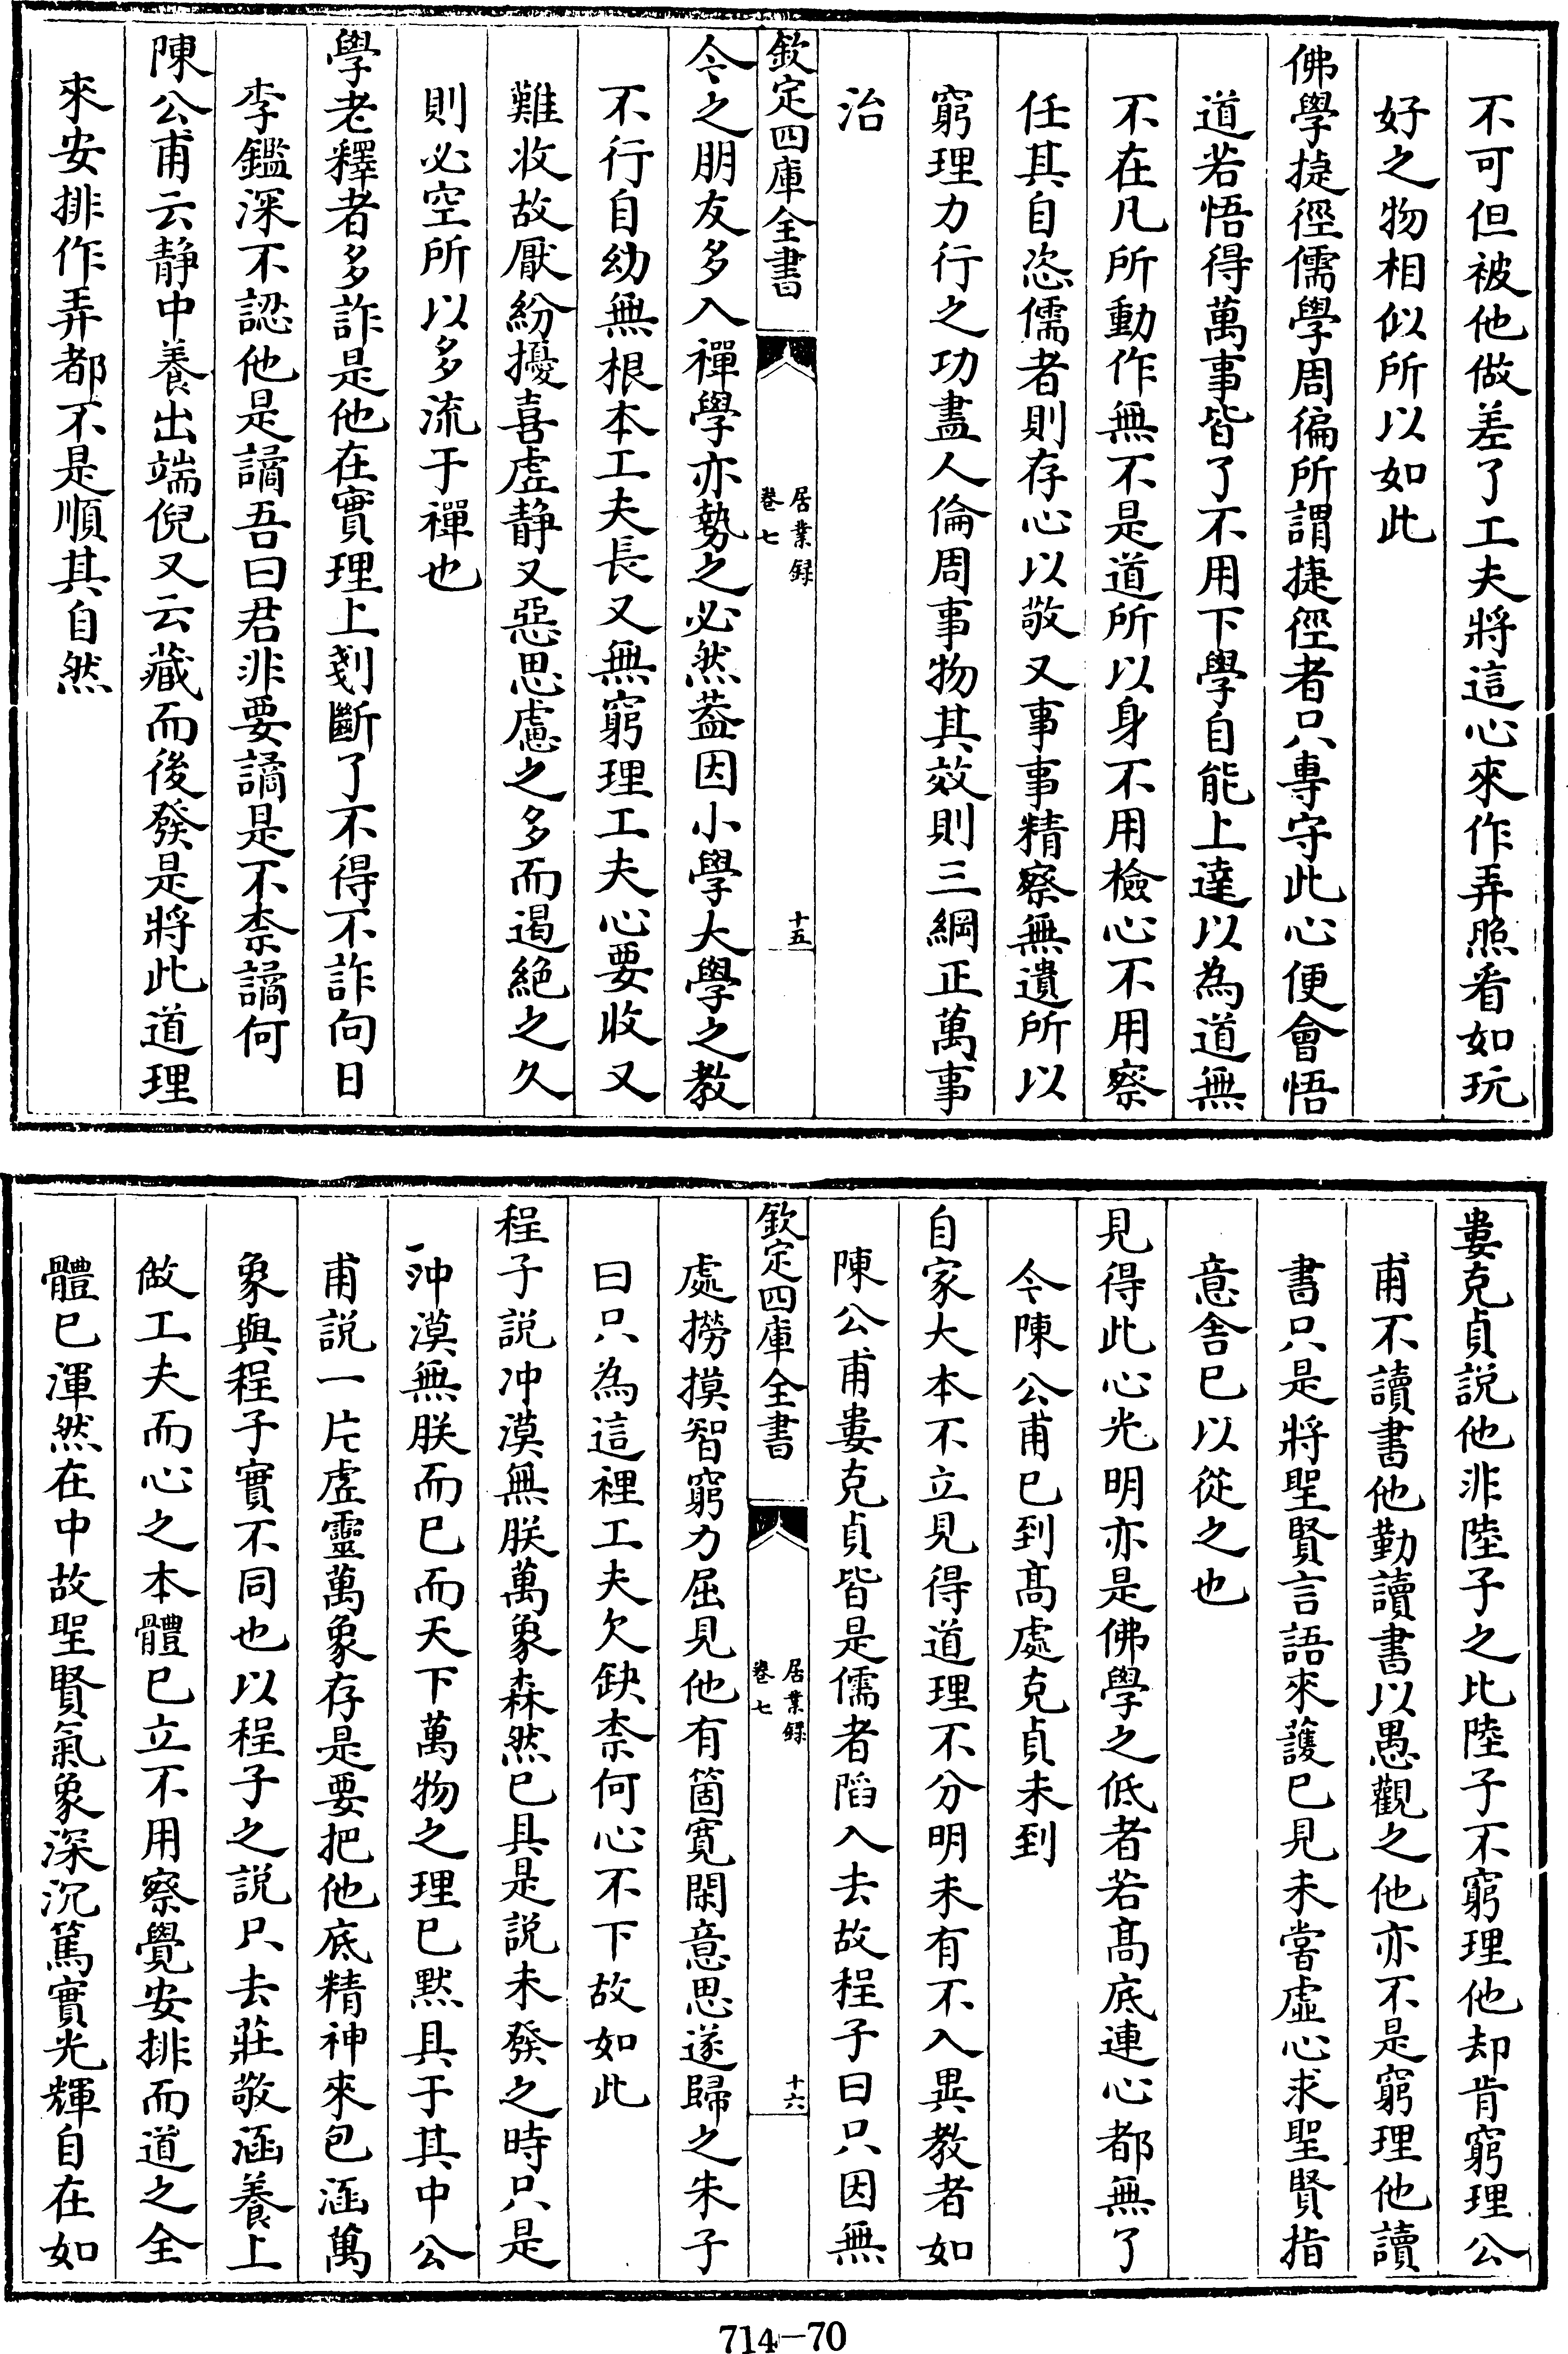 不可但被他做差了工夫將這心來作弄照看如玩
好之物相似所以如此
佛學捷徑儒學周徧所謂捷徑者只專守此心便會悟
道若悟得萬事皆了不用下學自能上達以為道無
不在凡所動作無不是道所以身不用檢心不用察
任其自恣儒者則存心以敬又事事精察無遺所以
窮理力行之功盡人倫周事物其效則三綱正萬事
治
欽定四庫全書
居業録
卷七
十五
今之朋友多入禪學亦勢之必然葢因小學大學之教
不行自幼無根本工夫長又無窮理工夫心要收又
難收故厭紛擾喜虛静又惡思慮之多而遏絶之久
則必空所以多流于禪也
學老釋者多詐是他在實理上剗斷了不得不詐向日
李鑑深不認他是譎吾曰君非要譎是不柰譎何
陳公甫云静中養出端倪又云藏而後發是將此道理
來安排作弄都不是順其自然
婁克貞説他非陸子之比陸子不窮理他却肯窮理公
甫不讀書他勤讀書以愚觀之他亦不是窮理他讀
書只是將聖賢言語來䕶已見未嘗虛心求聖賢指
意舍已以從之也
見得此心光明亦是佛學之低者若髙底連心都無了
今陳公甫已到髙處克貞未到
自家大本不立見得道理不分明未有不入異教者如
陳公甫婁克貞皆是儒者陷入去故程子曰只因無
欽定四庫全書
居業録
卷七
十六
處撈摸智窮力屈見他有箇寛閑意思遂歸之朱子
曰只為這裡工夫欠缺柰何心不下故如此
程子説冲漠無朕萬象森然已具是説未發之時只是
冲漠無朕而已而天下萬物之理已黙具于其中公
甫説一片虛靈萬象存是要把他底精神來包涵萬
象與程子實不同也以程子之説只去莊敬涵養上
做工夫而心之本體已立不用察覺安排而道之全
體已渾然在中故聖賢氣象深沉篤實光輝自在如
714-70